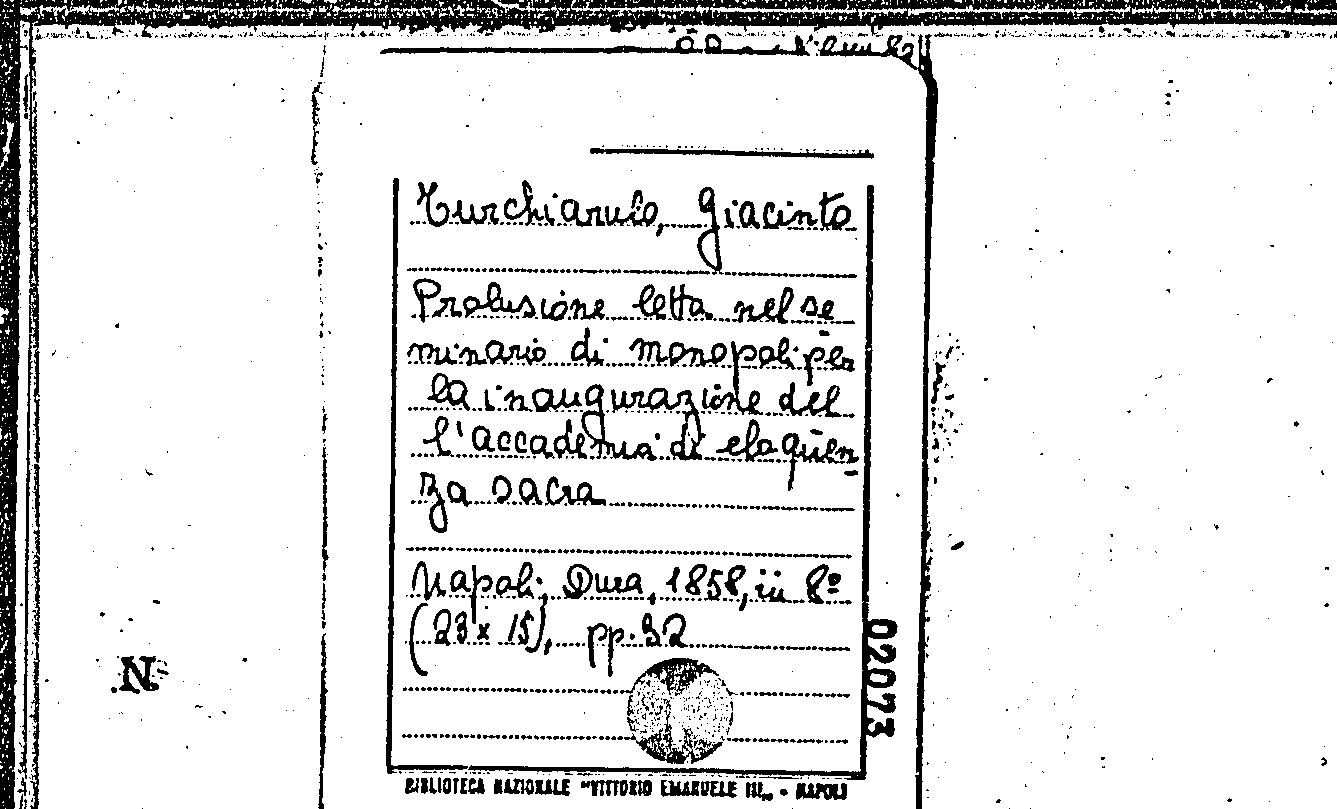 Turchiarulo, Giacinto
Prolusione letta nel se
minario di monopoli per
la inaugurazione del
l'accademia di eloquen
za sacra
Napoli, Dura, 1858, in 8º
(23 x 15), pp. 32
02073
N
BIBLIOTECA NAZIONALE "VITTORIO EMANUELE III" - NAPOLI